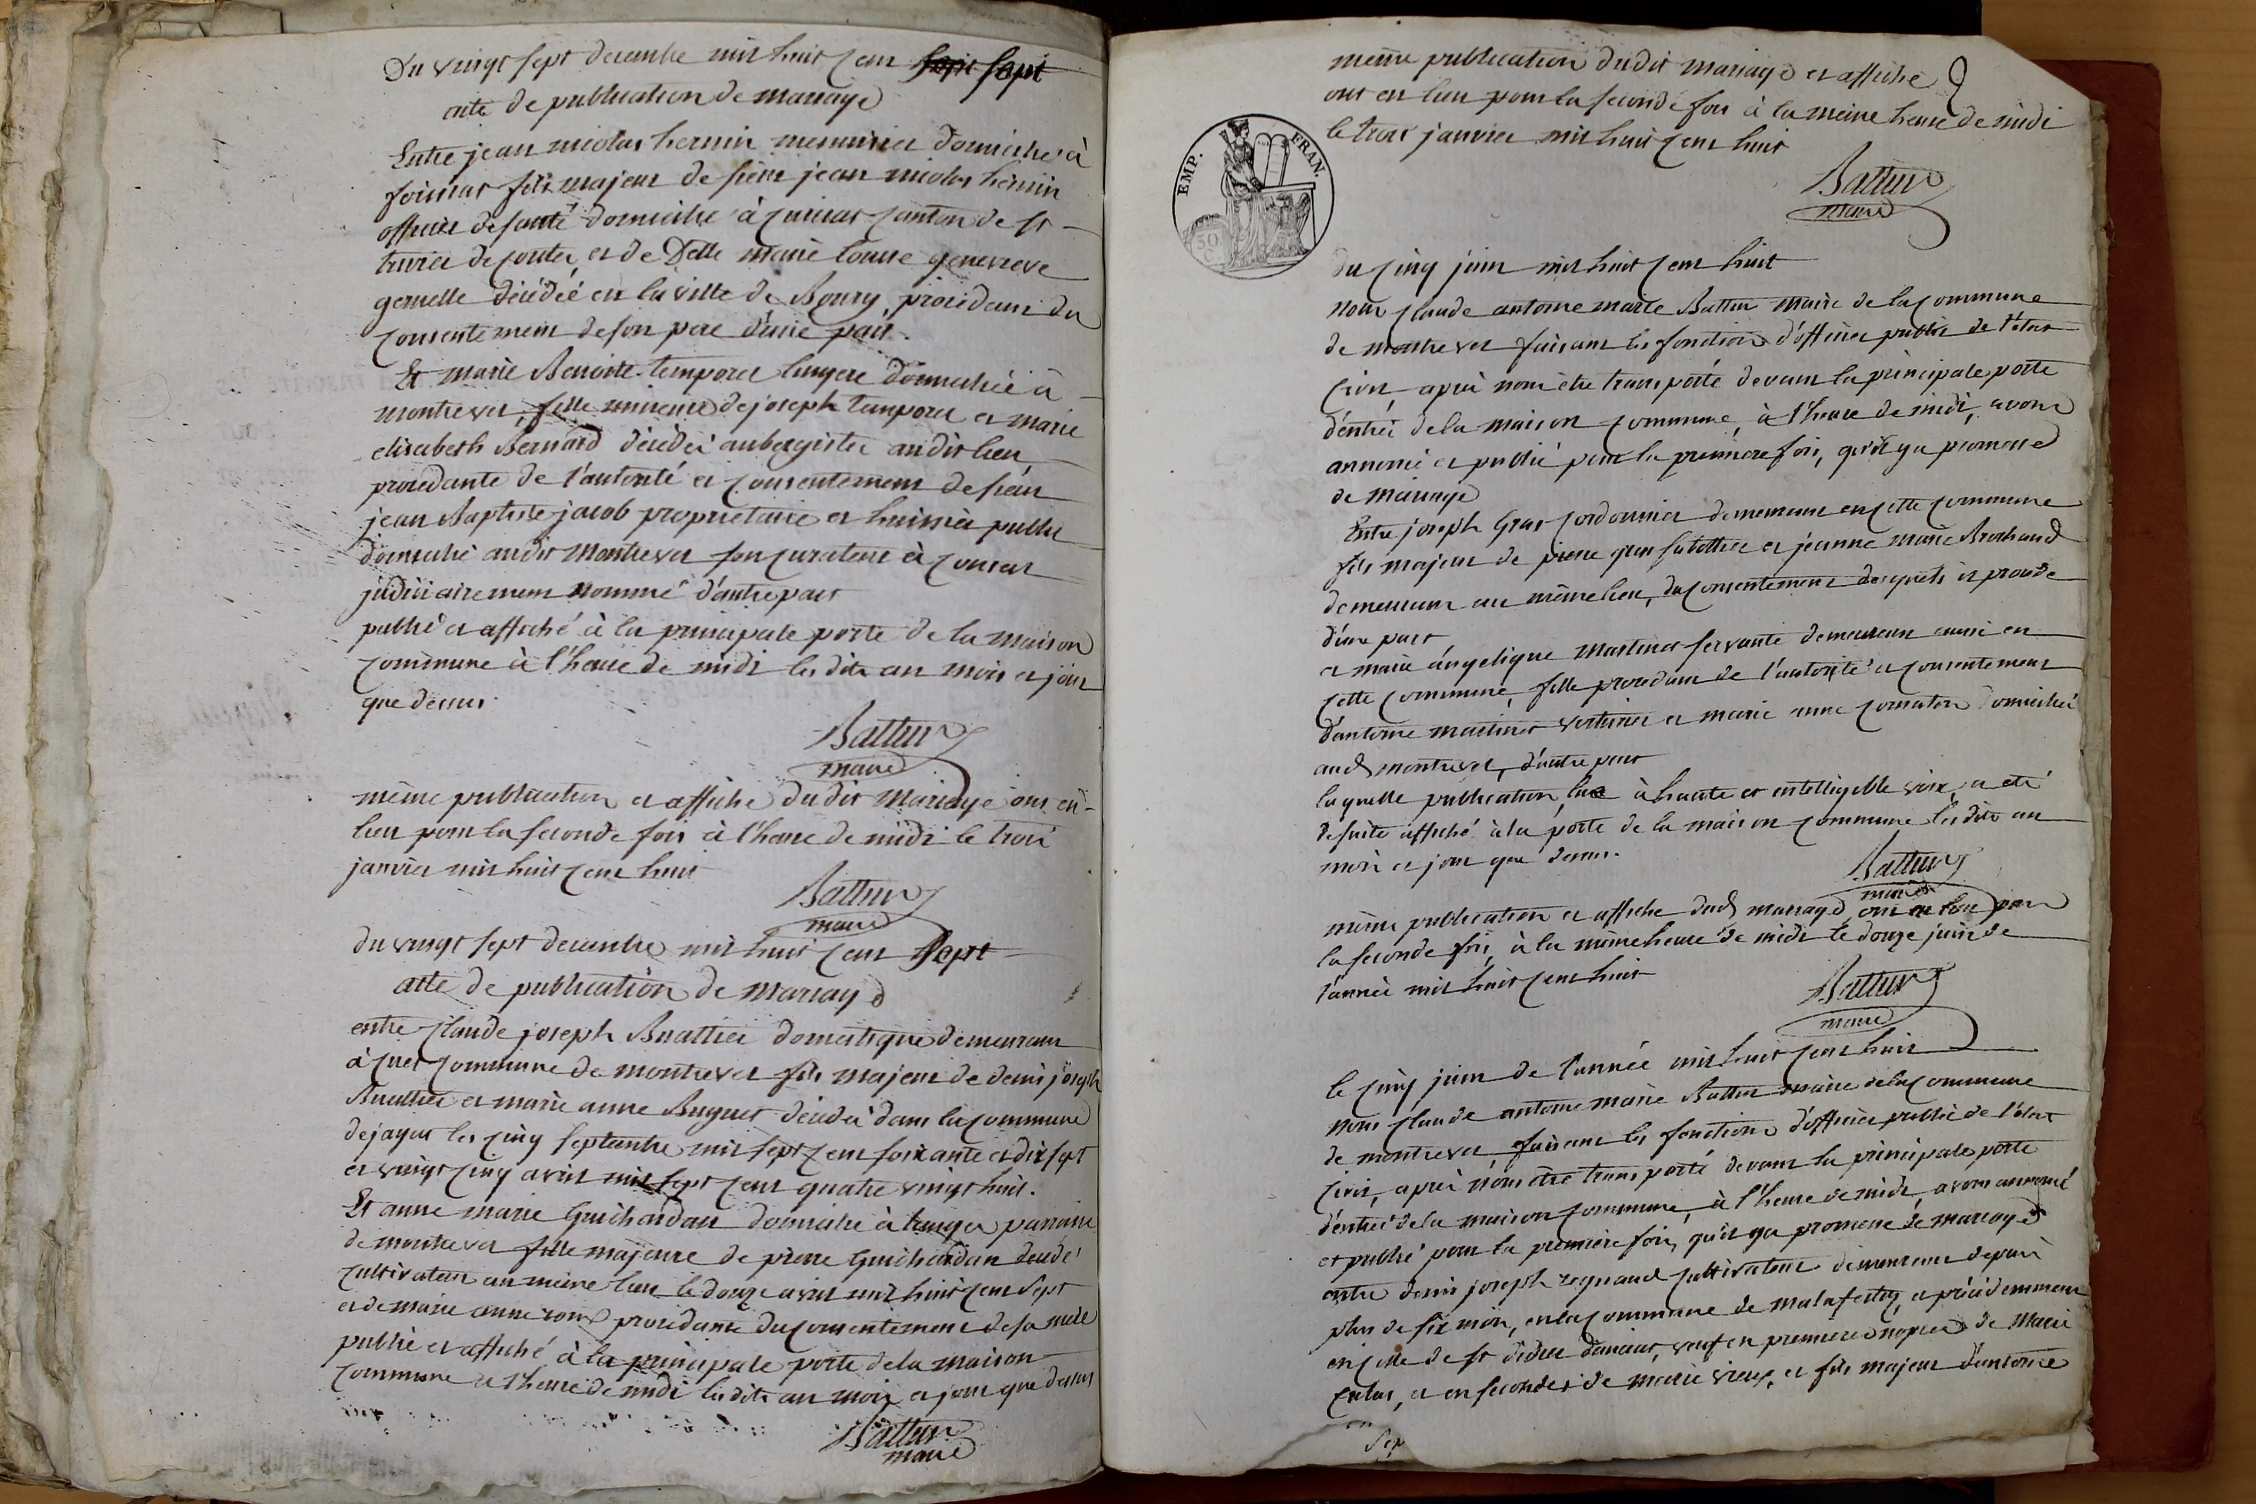 Du vingt sept decembre mil huit cent sept
acte de publication de mariage
Entre jean nicolas hermin menuisier domicilié à
foissiat fils majeur de sieur jean nicolas hermin
officier de santé domicilié à canton de st
trivier de courtes, et de Delle marie louise genevieve
gemelle décédée en la ville de Bourg, procédant du
consentement de son pere d'une part.
Et marie Benoite temporel lingere domiciliée à
montrevel, fille mineure de joseph temporel et marie
elisabeth Bernard décédés aubergistes audit lieu
procédante de l'autorité et consentement de sieur
jean Baptiste jacob proprietaire et huissier public
domicilié audit Montrevel son curateur à
judiciairement nommé d'autre part
publié et affiché à la principale porte de la maison
commune à l'heure de midi les dits an mois et jour
que dessus.
Battur
maire
même publication et affiche du dit Mariage ont eu
lieu pour la seconde fois à l'heure de midi le trois
janvier mil huit cent huit
Battur
maire
du vingt sept decembre mil huit cent sept
acte de publication de mariage
entre claude joseph Buattier domestique demeurant
à cuet commune de montrevel fils majeur de denis joseph
Buattier et marie anne Buguet décédés dans la commune
de jayat les cinq septembre mil sept cent soixante et dix sept
et vingt cinq avril mil sept cent quatre vingt huit.
Et anne marie Guichardan domiciliée à
de montrevel fille majeure de pierre Guichardan décédé
cultivateur au même lieu le douze avril mil huit cent sept
et de marie anne procédante du consentement de sa mere
publié et affiché à la principale porte de la maison
commune à l'heure de midi les dits an mois et jour que dessus
Battur
maire
même publication dudit mariage et affiche
ont eu lieu pour la seconde fois à la meme heure de midi
le trois janvier mil huit cent huit
EMP. FRAN.
50
C
Battur
maire
du cinq juin mil huit cent huit
nous claude antoine marie Battur maire de la commune
de montrevel faisant les fonctions d'officier public de l'état
civil, après nous etre transporté devant la principale porte
d'entrée de la maison commune, à l'heure de midi, avons
annoncé et publié pour la première fois, qu'il y a promesse
de mariage
Entre joseph Gras cordonnier demeurant en cette commune
fils majeur de pierre gras sabottier et jeanne marie Brochand
demeurant au même lieu, du consentement desquels il procède
d'une part
et marie angelique Martinet servante demeurant aussi en
cette commune, fille procédant de l'autorité et consentement
d'antoine martinet et marie anne domiciliés
aud montrevel, d'autre part
laquelle publication lue à haute et intelligible voix, a été
de suite affiché à la porte de la maison commune les dits an
mois et jour que dessus.
Battur
maire
même publication et affiche dud mariage ont eu lieu pour
la seconde fois, à la même heure de midi le douze juin de
l'année mil huit cent huit
Battur
maire
le cinq juin de l'année mil huit cent huit
nous claude antoine marie Battur maire de la commune
de montrevel faisant les fonctions d'officier public de l'état
civil, après nous être transporté devant la principale porte
d'entrée de la maison commune, à l'heure de midi, avons annoncé
et publié pour la première fois, qu'il y a promesse de mariage
entre denis joseph regnaud cultivateur demeurant depuis
plus de six mois, en la commune de malafretaz, et précédemment
en celle de st didier d'aussiat, veuf en premieres noces de Marie
, et en secondes de marie vieux, et fils majeur d'antoine